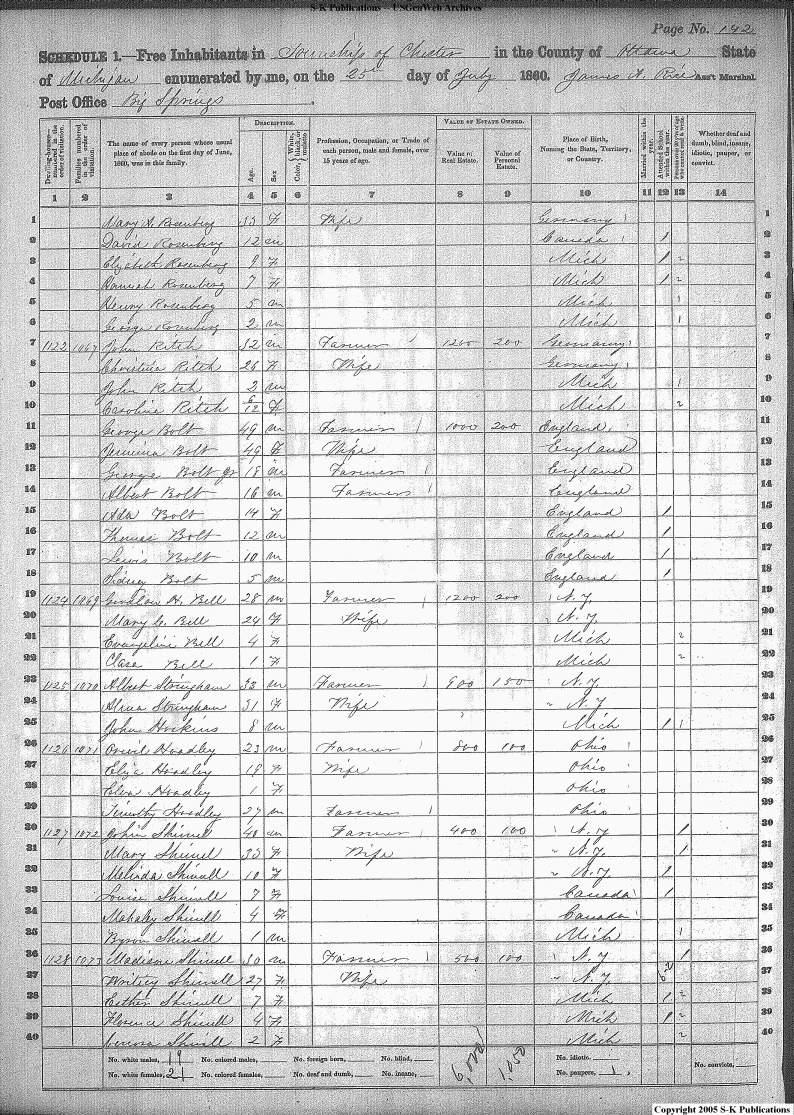 S-K Publications – USGenWeb Archives
Page No. 142
SCHEDULE 1.—Free Inhabitants in Township of Chester in the County of Ottawa State
of Michigan enumerated by me, on the 25th day of July 1860. James A. Ass't Marshal
Post Office Big Springs.
Dwelling-houses numbered in the order of visitation. Families numbered in the order of visitation. The name of every person whose usual place of abode on the first day of June, 1860, was in this family. DESCRIPTION. Age. Sex Color, White, black, or mulatto. Profession, Occupation, or Trade of each person, male and female, over 15 years of age. VALUE OF ESTATE OWNED. Value of Real Estate. Value of Personal Estate. Place of Birth, Naming the State, Territory, or Country. Married within the year. Attended School within the year. Persons over 20 y'rs of age who cannot read & write. Whether deaf and dumb, blind, insane, idiotic, pauper, or convict.
1 2 3 4 5 6 7 8 9 10 11 12 13 14
1 Mary A. Rosenberg 33 F Wife Germany 1
2 David Rosenberg 12 m Canada 1 2
3 Elizabeth Rosenberg 9 F Mich 1 2 3
4 Hannah Rosenberg 7 F Mich 1 2 4
5 Henry Rosenberg 5 m Mich 1 5
6 George Rosenberg 2 m Mich 1 6
7 1122 1067 John Ritch 32 m Farmer 1200 200 Germany 7
8 Christina Ritch 26 F Wife Germany 8
9 John Ritch 2 m Mich 1 9
10 Caroline Ritch 6/12 F Mich 2 10
11 George Bolt 49 m Farmer 1000 200 England 11
12 Jemima Bolt 49 F Wife England 12
13 George Bolt Jr 18 m Farmer England 13
14 Albert Bolt 16 m Farmer England 14
15 Ada Bolt 14 F England 1 15
16 Thomas Bolt 12 m England 1 16
17 Lewis Bolt 10 m England 1 17
18 Sidney Bolt 5 m England 1 18
19 1124 1069 H. Bell 28 m Farmer 1200 200 N.Y. 19
20 Mary C. Bell 24 F Wife N.Y. 20
21 Evangeline Bell 4 F Mich 2 21
22 Clara Bell 1 F Mich 2 22
23 1125 1070 Albert Stringham 33 m Farmer 900 150 N.Y. 23
24 Stringham 31 F Wife " N.Y. 24
25 John Hoskins 8 m Mich 1 1 25
26 1126 1071 Orvil Hoadley 23 m Farmer 800 100 Ohio 26
27 Eliza Hoadley 19 F Wife Ohio 27
28 Elva Hoadley 1 F Ohio 28
29 Timothy Hoadley 27 m Farmer Ohio 29
30 1127 1072 John Shinell 40 m Farmer 400 100 N.Y. 1 30
31 Mary Shinell 33 F Wife " N.Y. 1 31
32 Melinda Shinell 10 F " N.Y. 1 32
33 Louise Shinell 7 F Canada 1 33
34 Mahaley Shinell 4 F Canada 34
35 Byron Shinell 1 m Mich 1 35
36 1128 1073 Madison Shinell 30 m Farmer 500 100 N.Y. 1 36
37 Shinell 27 F Wife " N.Y. 37
38 Esther Shinell 7 F Mich 1 2 38
39 Florence Shinell 4 F Mich 1 2 39
40 Shinell 2 F Mich 2 40
No. white males, 19 No. colored males, No. foreign born, No. blind, 6,000 1,050 No. idiotic No. convicts,
No. white females, 21 No. colored females, No. deaf and dumb, No. insane, No. paupers, 1
Copyright 2005 S-K Publications